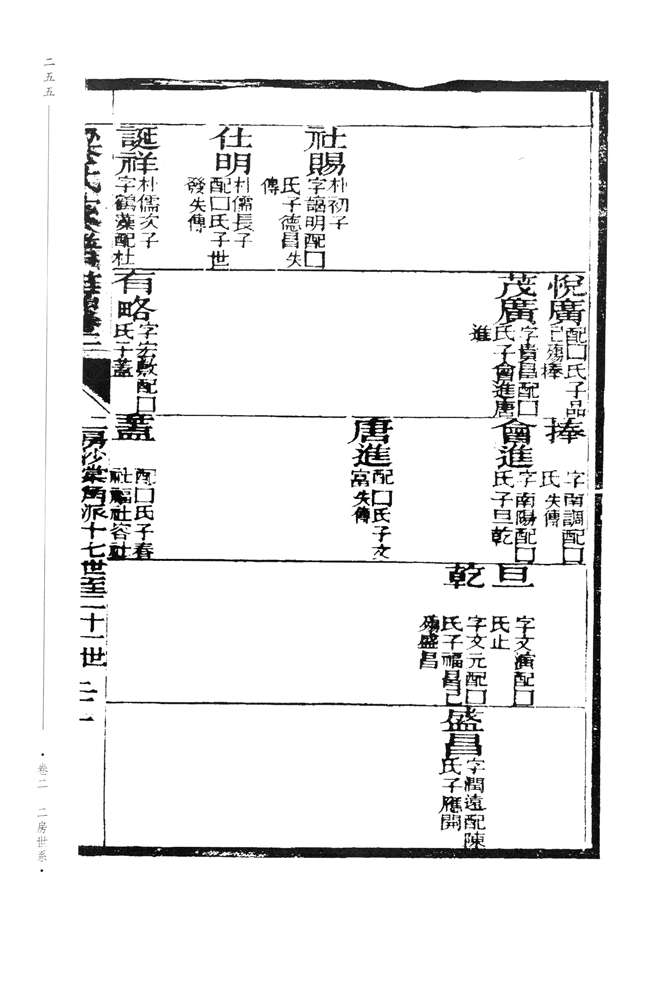 社賜
朴初子
字謁明配囗
氏子德昌失
傳
仕明
朴儒長子
配囗氏子世
發失傳
誕祥
朴儒次子
字鶴藻配杜
悅廣
配囗氏子品
已殤捧
茂廣
字貴昌配囗
氏子會進唐
進
有略
字宏敷配囗
氏子蓋
捧
字南調配囗
氏失傳
會進
字南陽配囗
氏子旦乾
唐進
配囗氏子文
富失傳
蓋
配囗氏子春
社福社容社
旦
字文演配囗
氏止
乾
字文元配囗
氏子福昌已
殤盛昌
盛昌
字潤遠配陳
氏子應開
二房沙棠角派十七世至二十一世 二二
二五五
·卷二 二房世系·